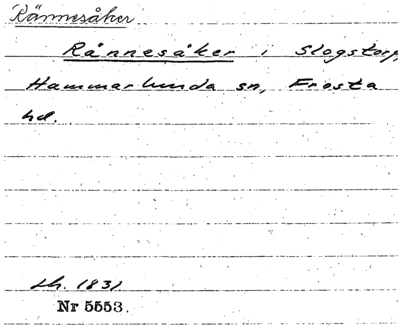 Rännesåker
Rånnesåker i Slogstorp,
Hammarlunda sn, Frosta
hd.
Lh. 1831
Nr 5553.